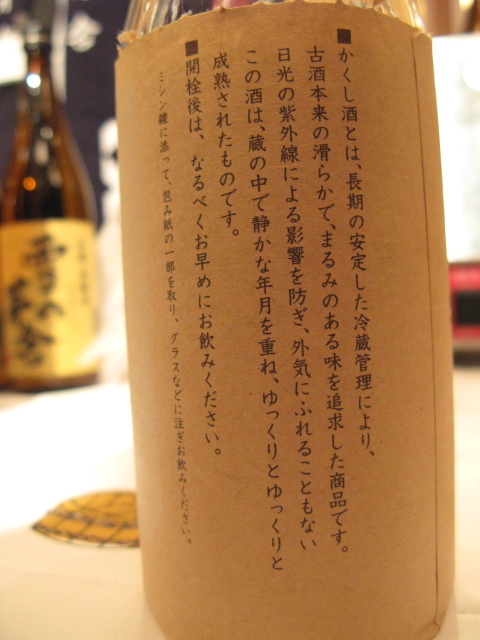 ■かくし酒とは、長期の安定した冷蔵管理により、
古酒本来の滑らかで、まるみのある味を追求した商品です。
日光の紫外線による影響を防ぎ、外気にふれることもない
この酒は、蔵の中で静かな年月を重ね、ゆっくりとゆっくりと
成熟されたものです。
■開栓後は、なるべくお早めにお飲みください。
ミシン線に添って、包み紙の一部を取り、グラスなどに注ぎお飲みください。
雪の